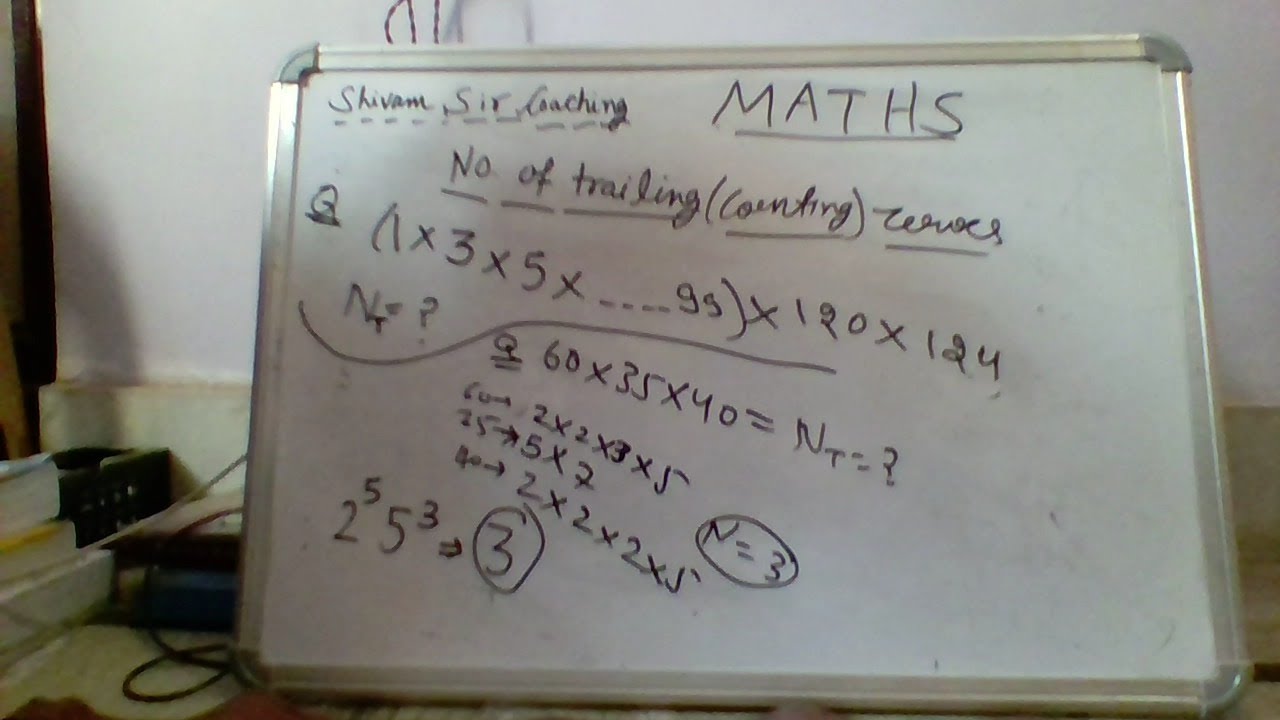 Shivam Sir Coaching
MATHS
No. of trailing (Counting) zeroes
Q (1 × 3 × 5 × ....99) × 120 × 124
N_T = ?
Q 60 × 35 × 40 = N_T = ?
60 → 2 × 2 × 3 × 5
5 × 7
40 → 2 × 2 × 2 × 5
2⁵ 5³ ⇒ 3
N = 3